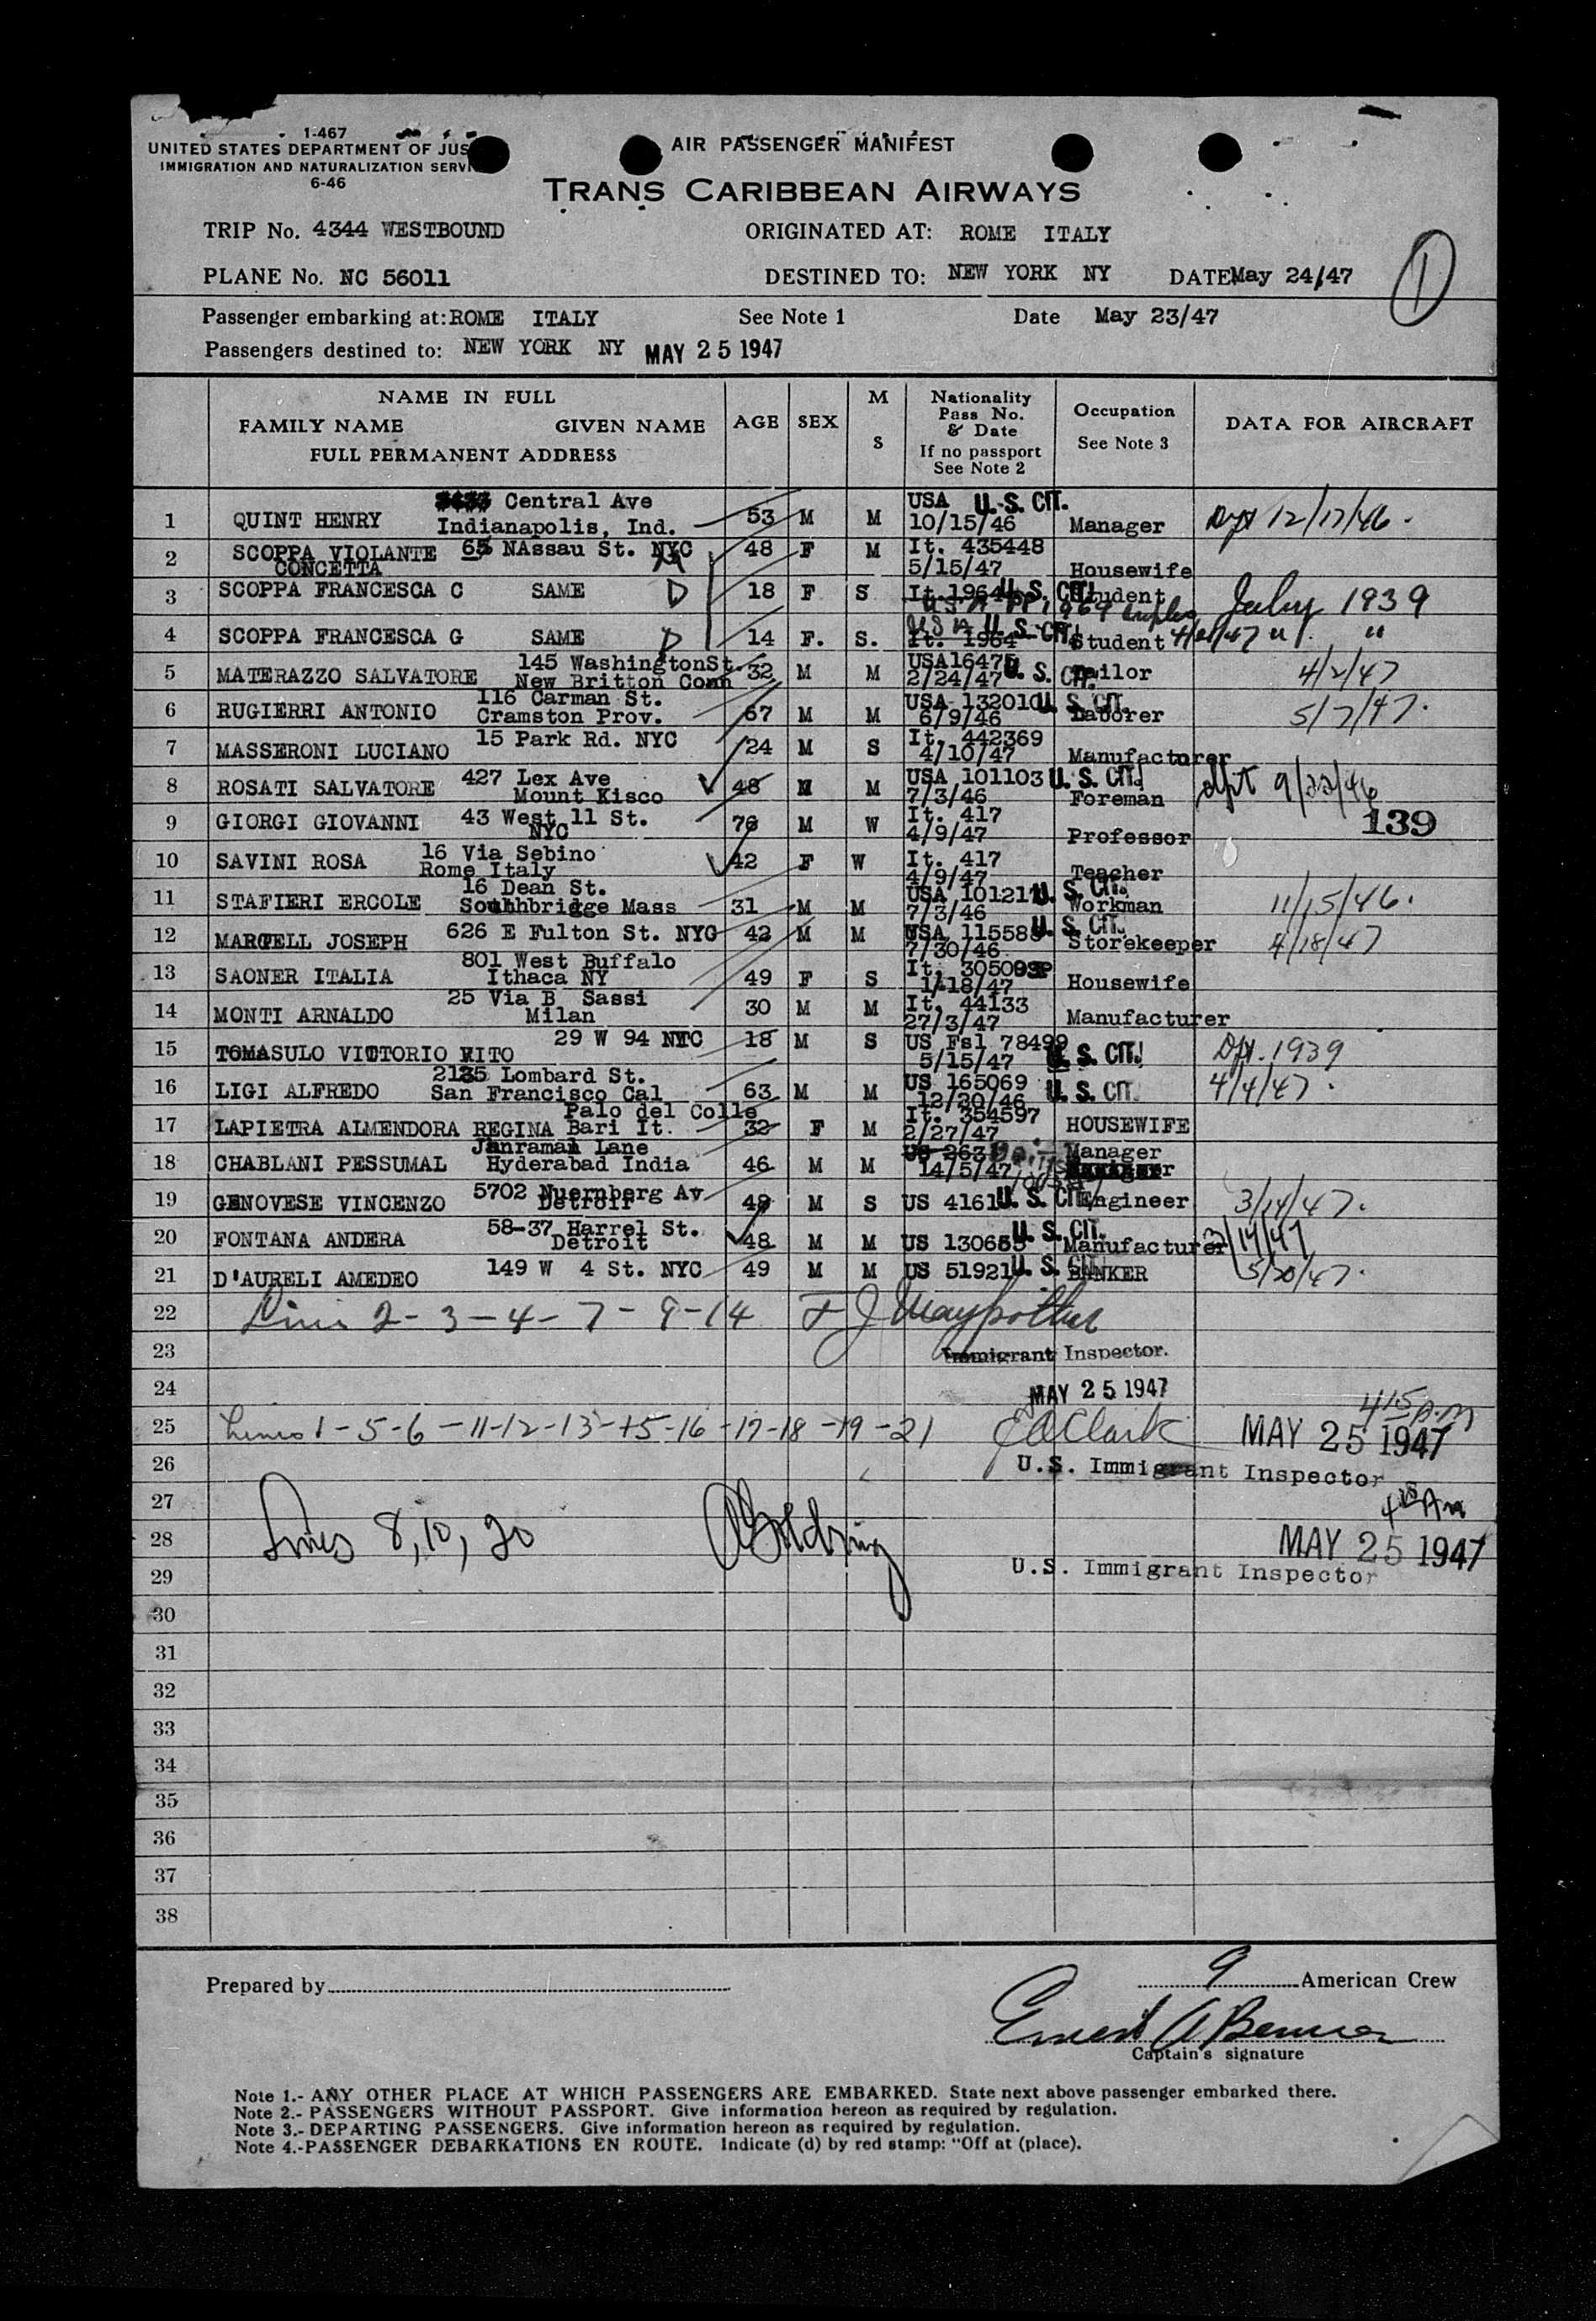 1-467
UNITED STATES DEPARTMENT OF JUS
IMMIGRATION AND NATURALIZATION SERVI
6-46
AIR PASSENGER MANIFEST
TRANS CARIBBEAN AIRWAYS
TRIP No. 4344 WESTBOUND ORIGINATED AT: ROME ITALY
PLANE No. NC 56011 DESTINED TO: NEW YORK NY DATE May 24/47
1
Passenger embarking at: ROME ITALY See Note 1 Date May 23/47
Passengers destined to: NEW YORK NY MAY 25 1947
NAME IN FULL
FAMILY NAME GIVEN NAME
FULL PERMANENT ADDRESS
AGE SEX M S
Nationality Pass No. & Date If no passport See Note 2
Occupation See Note 3
DATA FOR AIRCRAFT
1 QUINT HENRY Central Ave Indianapolis, Ind. 53 M M USA 10/15/46 U.S. CIT. Manager 12/17/46.
2 SCOPPA VIOLANTE CONCETTA 65 NAssau St. NYC 48 F M It. 435448 5/15/47 Housewife
3 SCOPPA FRANCESCA C SAME D 18 F S It. 1964 U.S. CIT. Student July 1939
4 SCOPPA FRANCESCA G SAME D 14 F. S. USA It. 1964 U.S. CIT. Student " "
5 MATERAZZO SALVATORE 145 WashingtonSt. New Britton Conn 32 M M USA16475 2/24/47 U.S. CIT. Tailor 4/2/47
6 RUGIERRI ANTONIO 116 Carman St. Cramston Prov. 67 M M USA 132010 6/9/46 U.S. CIT. Laborer 5/7/47.
7 MASSERONI LUCIANO 15 Park Rd. NYC 24 M S It. 442369 4/10/47 Manufacturer
8 ROSATI SALVATORE 427 Lex Ave Mount Kisco 48 M M USA 101103 7/3/46 U.S. CIT. Foreman 9/22/46
139
9 GIORGI GIOVANNI 43 West 11 St. NYC 76 M W It. 417 4/9/47 Professor
10 SAVINI ROSA 16 Via Sebino Rome Italy 42 F W It. 417 4/9/47 Teacher
11 STAFIERI ERCOLE 16 Dean St. Southbridge Mass 31 M M USA 101211 7/3/46 U.S. CIT. Workman 11/15/46.
12 MARTELL JOSEPH 626 E Fulton St. NYC 42 M M USA 115588 7/30/46 U.S. CIT. Storekeeper 4/18/47
13 SAONER ITALIA 801 West Buffalo Ithaca NY 49 F S It. 305093P 1/18/47 Housewife
14 MONTI ARNALDO 25 Via B Sassi Milan 30 M M It. 44133 27/3/47 Manufacturer
15 TOMASULO VITTORIO VITO 29 W 94 NYC 18 M S US Fsl 78499 5/15/47 U.S. CIT. 1939
16 LIGI ALFREDO 2135 Lombard St. San Francisco Cal 63 M M US 165069 12/20/46 U.S. CIT. 4/4/47.
17 LAPIETRA ALMENDORA REGINA Palo del Colle Bari It. 32 F M It. 354597 2/27/47 HOUSEWIFE
18 CHABLANI PESSUMAL Lane Hyderabad India 46 M M US 263 14/5/47 Manager
19 GENOVESE VINCENZO 5702 Nuernberg Av Detroit 49 M S US 4161 U.S. CIT. Engineer 3/14/47.
20 FONTANA ANDERA 58-37 Harrel St. Detroit 48 M M US 130655 U.S. CIT. Manufacturer 3/14/47
21 D'AURELI AMEDEO 149 W 4 St. NYC 49 M M US 51921 U.S. CIT. BANKER 5/20/47.
22 Lines 2-3-4-7-9-14
23 Immigrant Inspector.
24 MAY 25 1947
25 Lines 1-5-6-11-12-13-15-16-17-18-19-21 Clark MAY 25 1947 4 15 AM
26 U.S. Immigrant Inspector
27 4 15 AM
28 Lines 8, 10, 20 MAY 25 1947
29 U.S. Immigrant Inspector
30
31
32
33
34
35
36
37
38
Prepared by 9 American Crew
Ernest A
Captain's signature
Note 1.- ANY OTHER PLACE AT WHICH PASSENGERS ARE EMBARKED. State next above passenger embarked there.
Note 2.- PASSENGERS WITHOUT PASSPORT. Give information hereon as required by regulation.
Note 3.- DEPARTING PASSENGERS. Give information hereon as required by regulation.
Note 4.-PASSENGER DEBARKATIONS EN ROUTE. Indicate (d) by red stamp: "Off at (place).